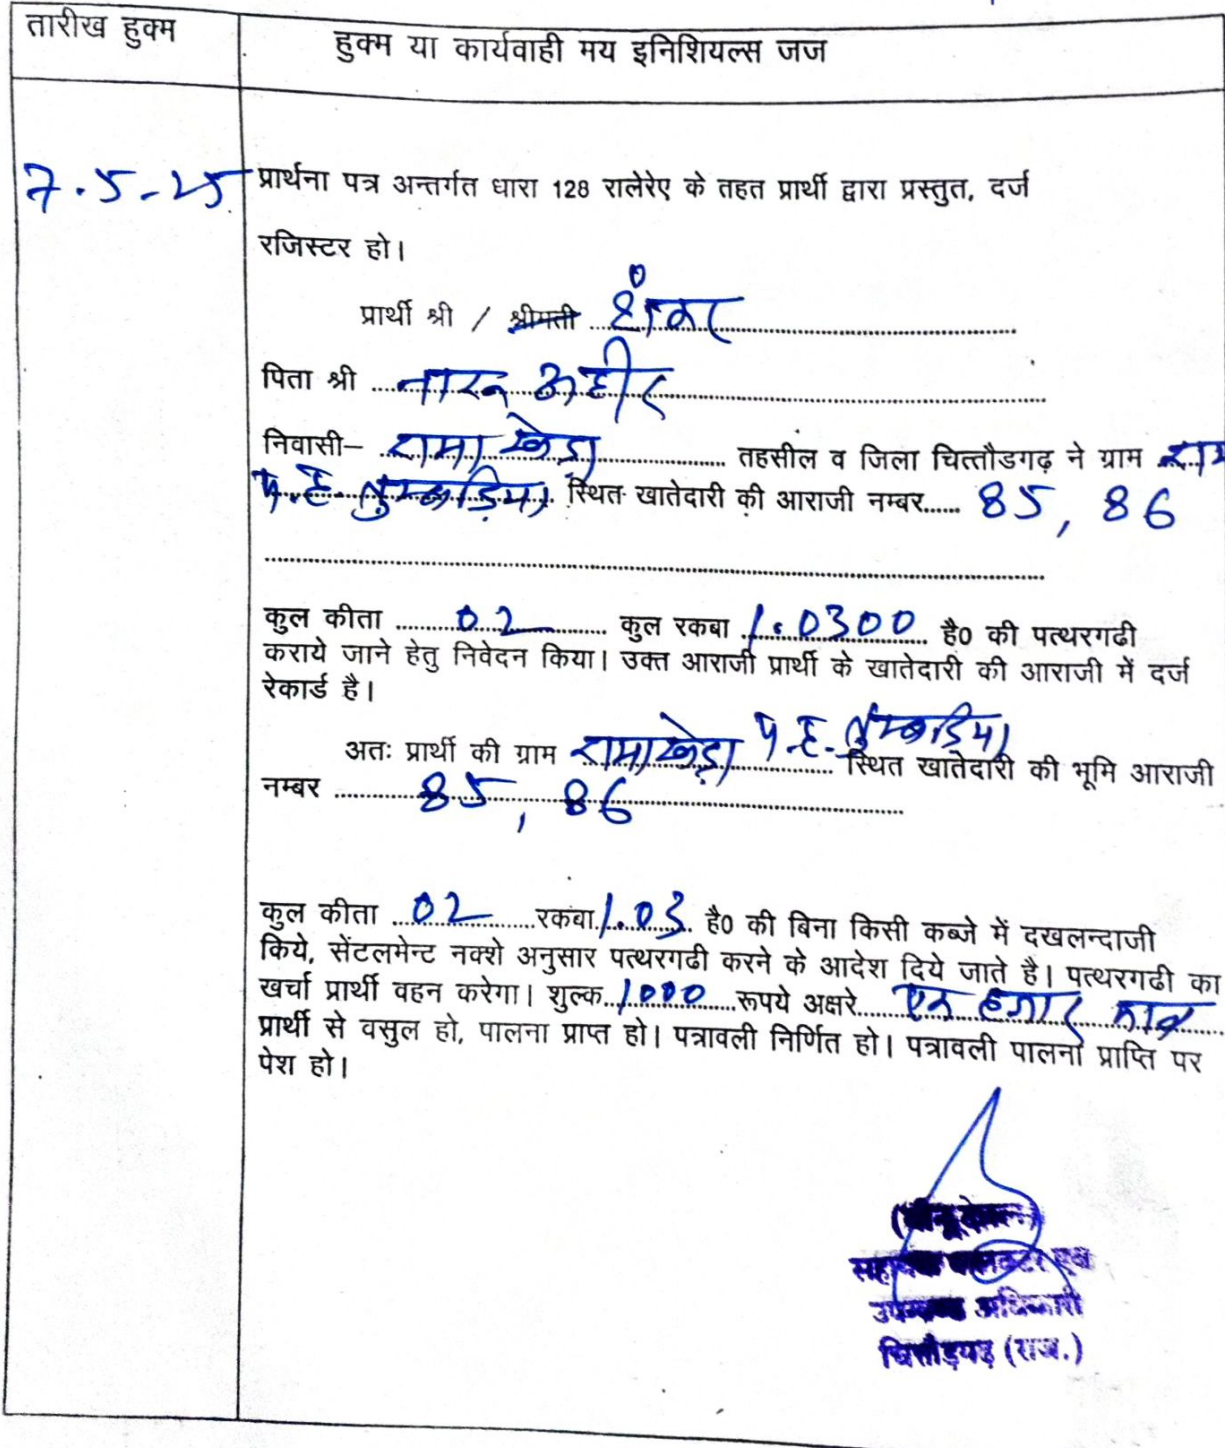 तारीख हुक्म
हुक्म या कार्यवाही मय इनिशियल्स जज
7.5-25
प्रार्थना पत्र अन्तर्गत धारा 128 रालेरेए के तहत प्रार्थी द्वारा प्रस्तुत, दर्ज
रजिस्टर हो।
प्रार्थी श्री / श्रीमती शंकर
पिता श्री नारू अहीर
निवासी– रामाखेड़ा तहसील व जिला चित्तौडगढ़ ने ग्राम
प.ह तुम्बड़िया स्थित खातेदारी की आराजी नम्बर...... 85, 86
कुल कीता 02 कुल रकबा 1.0300 है0 की पत्थरगढी
कराये जाने हेतु निवेदन किया। उक्त आराजी प्रार्थी के खातेदारी की आराजी में दर्ज
रेकार्ड है।
अतः प्रार्थी की ग्राम रामाखेड़ा प.ह. तुम्बडिया स्थित खातेदारी की भूमि आराजी
नम्बर 85, 86
कुल कीता 02 रकबा 1.03 है0 की बिना किसी कब्जे में दखलन्दाजी
किये, सेंटलमेन्ट नक्शे अनुसार पत्थरगढी करने के आदेश दिये जाते है। पत्थरगढी का
खर्चा प्रार्थी वहन करेगा। शुल्क 1000 रूपये अक्षरे एक हजार मात्र
प्रार्थी से वसुल हो, पालना प्राप्त हो। पत्रावली निर्णित हो। पत्रावली पालना प्राप्ति पर
पेश हो।
सहायक कलक्टर एवं
उपखण्ड अधिकारी
चित्तौड़गढ़ (राज.)